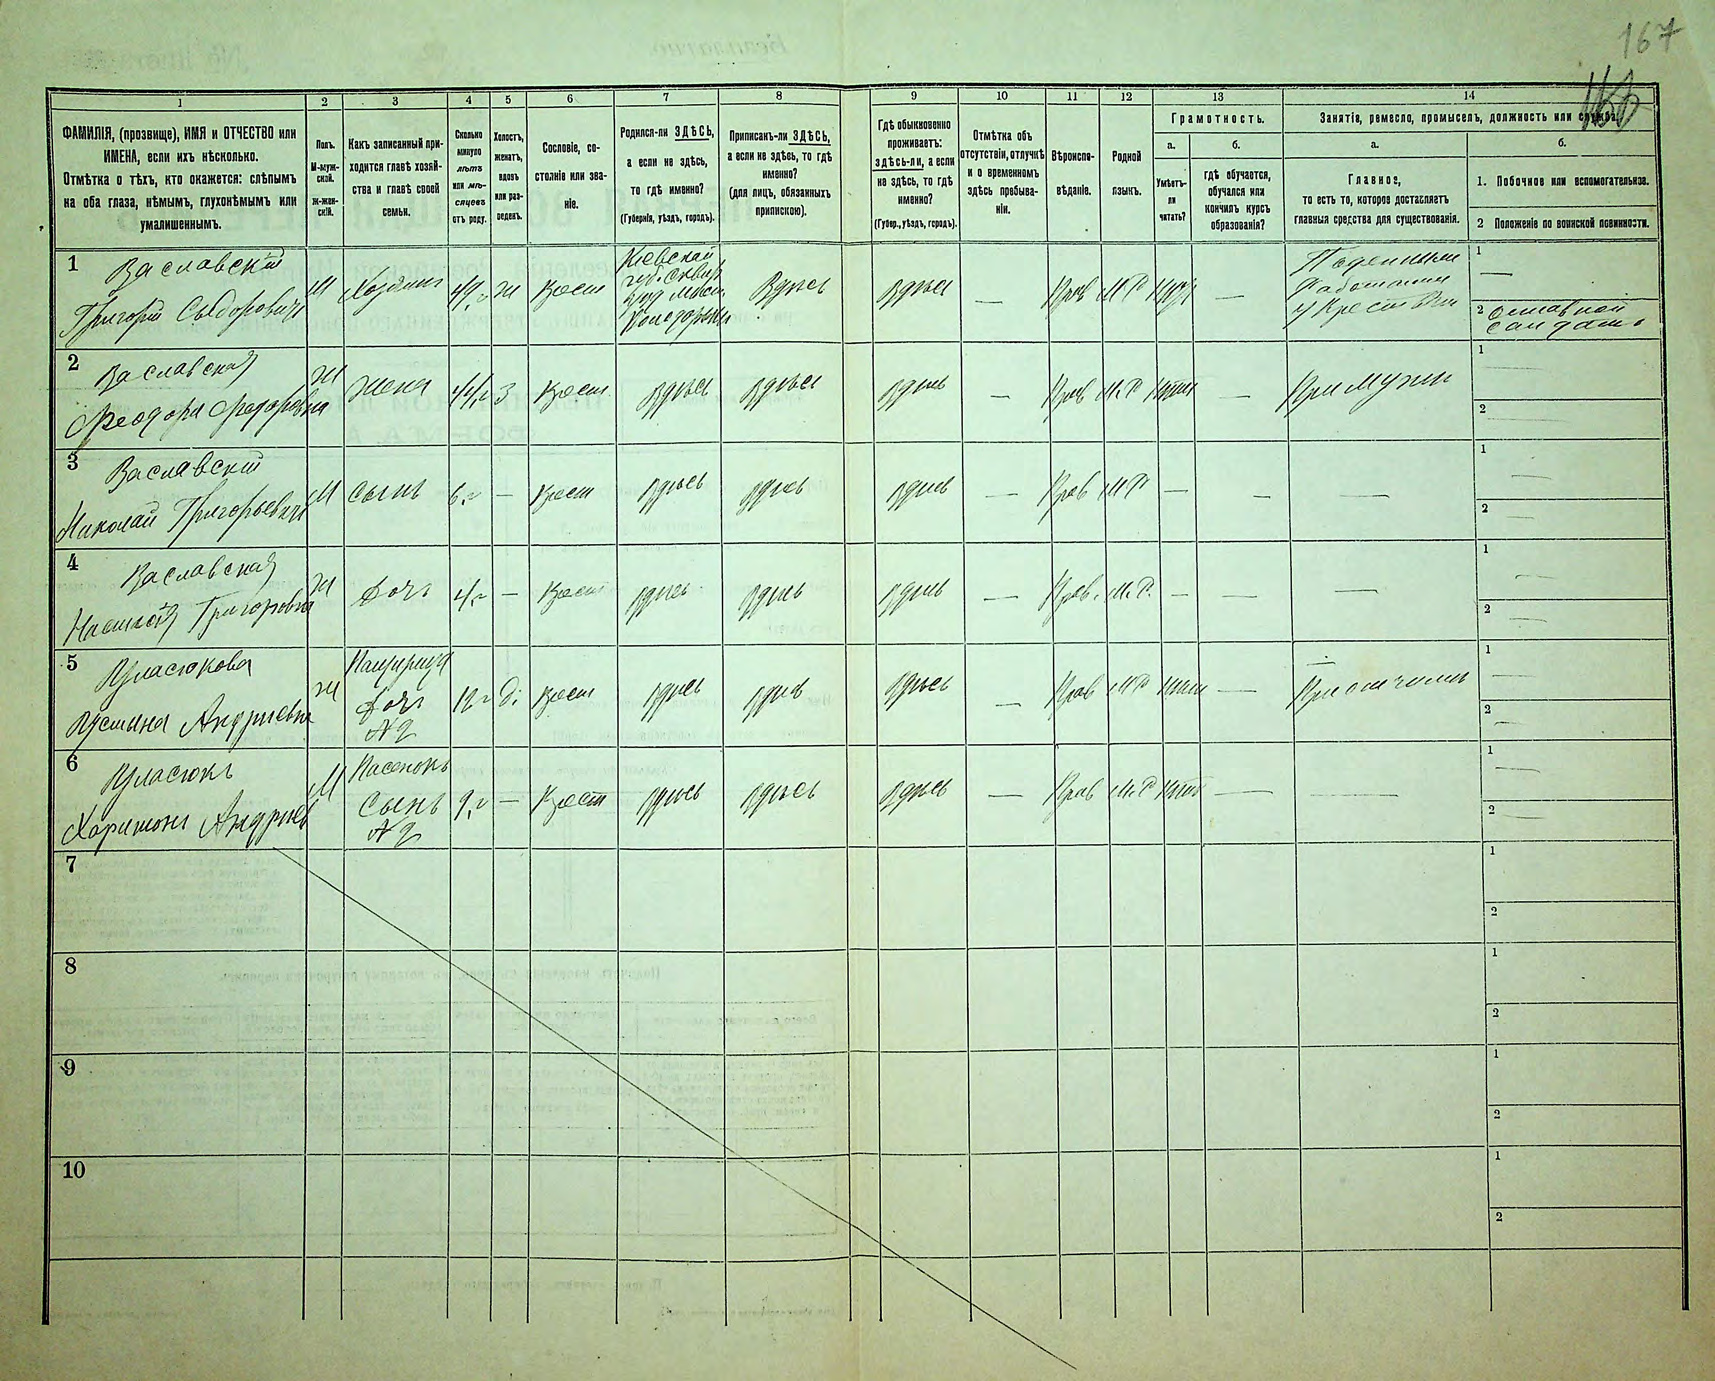 167
1 2 3 4 5 6 7 8 9 10 11 12 13 14
ФАМИЛІЯ, (прозвище), ИМЯ и ОТЧЕСТВО или
ИМЕНА, если ихъ нѣсколько.
Отмѣтка о тѣхъ, кто окажется: слѣпымъ
на оба глаза, нѣмымъ, глухонѣмымъ или
умалишеннымъ.
Полъ.
М-муж-
ской.
ж-жен-
скій.
Какъ записанный при-
ходится главѣ хозяй-
ства и главѣ своей
семьи.
Сколько
минуло
лѣтъ
или мѣ-
сяцевъ
отъ роду.
Холостъ,
женатъ,
вдовъ
или раз-
веденъ.
Сословіе, со-
стояніе или зва-
ніе.
Родился-ли ЗДѢСЬ,
а если не здѣсь,
то гдѣ именно?
(Губернія, уѣздъ, городъ).
Приписанъ-ли ЗДѢСЬ,
а если не здѣсь, то гдѣ
именно?
(для лицъ, обязанныхъ
припискою).
Гдѣ обыкновенно
проживаетъ:
здѣсь-ли, а если
не здѣсь, то гдѣ
именно?
(Губер., уѣздъ, городъ).
Отмѣтка объ
отсутствіи, отлучкѣ
и о временномъ
здѣсь пребыва-
ніи.
Вѣроиспо-
вѣданіе.
Родной
языкъ.
Грамотность.
а.
Умѣетъ-
ли
читать?
б.
гдѣ обучается,
обучался или
кончилъ курсъ
образованія?
Занятія, ремесло, промыселъ, должность или служба.
а.
Главное,
то есть то, которое доставляетъ
главныя средства для существованія.
б.
1. Побочное или вспомогательное.
2 Положеніе по воинской повинности.
1 Заславскій
Григорій Сыдоровичъ
М Хозяинъ ж Крест
Кіевской
губ. Сквир.
Здѣсь Здѣсь — Прав М.Р —
Поденный
1 —
2 Отставной
солдатъ
2 Заславская
Феодора Федоровна
Ж жена 3 Крест здѣсь здѣсь здѣсь — Прав М.Р нѣтъ — При мужи
1 —
2 —
3 Заславскій
Николай Григорьевичъ
М сынъ 6 — Крест здѣсь здѣсь здѣсь — Прав М.Р — — —
1 —
2 —
4 Заславская
Григоровна
Ж дочь 4 — Крест здѣсь здѣсь здѣсь — Прав. М.Р. — — —
1 —
2 —
5 Власюкова
Устина Андріевна
ж Падчерица
дочь
№ 2
д. Крест здѣсь здѣсь здѣсь — Прав М.Р нѣтъ — При отчимѣ
1 —
2 —
6 Власюкъ
Харитонъ Андріев
М Пасенокъ
сынъ
№ 2
9 — Крест здѣсь здѣсь здѣсь — Прав М.Р нѣтъ — —
1 —
2 —
7
1
2
8
1
2
9
1
2
10
1
2